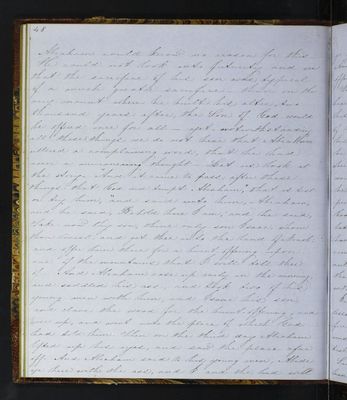 48
Abraham could know no reason for this
He could not look into futurity and see
that the sacrifice of his son was typical
of a much greater sacrifice than on the
very mount where he built his altar, two
thousand years after, the Son of God would
be offered once for all — yet notwithstanding
all these things we do not hear that Abraham
uttered a complaining word, or that he had
ever a murmuring thought. Let us look at
the story. And it came to pass after these
things that God did tempt Abraham, that
him, and said unto him, Abraham,
and he said, Behold here I am, and he said,
Take now thy son, thine only son Isaac whom
thou lovest and get thee into the land of
and offer him there for a burnt offering upon
one of the mountains that I will tell thee
of. And Abraham rose up early in the morning
and saddled his ass, and took two of his
young men with him, and Isaac his son
and clave the wood for the burnt offering, and
rose up, and went unto the place of which God
had told him. Then on the third day Abraham
lifted up his eyes, and saw the place afar
off. And Abraham said to his young men, Abide
ye here with the ass, and I and the lad will